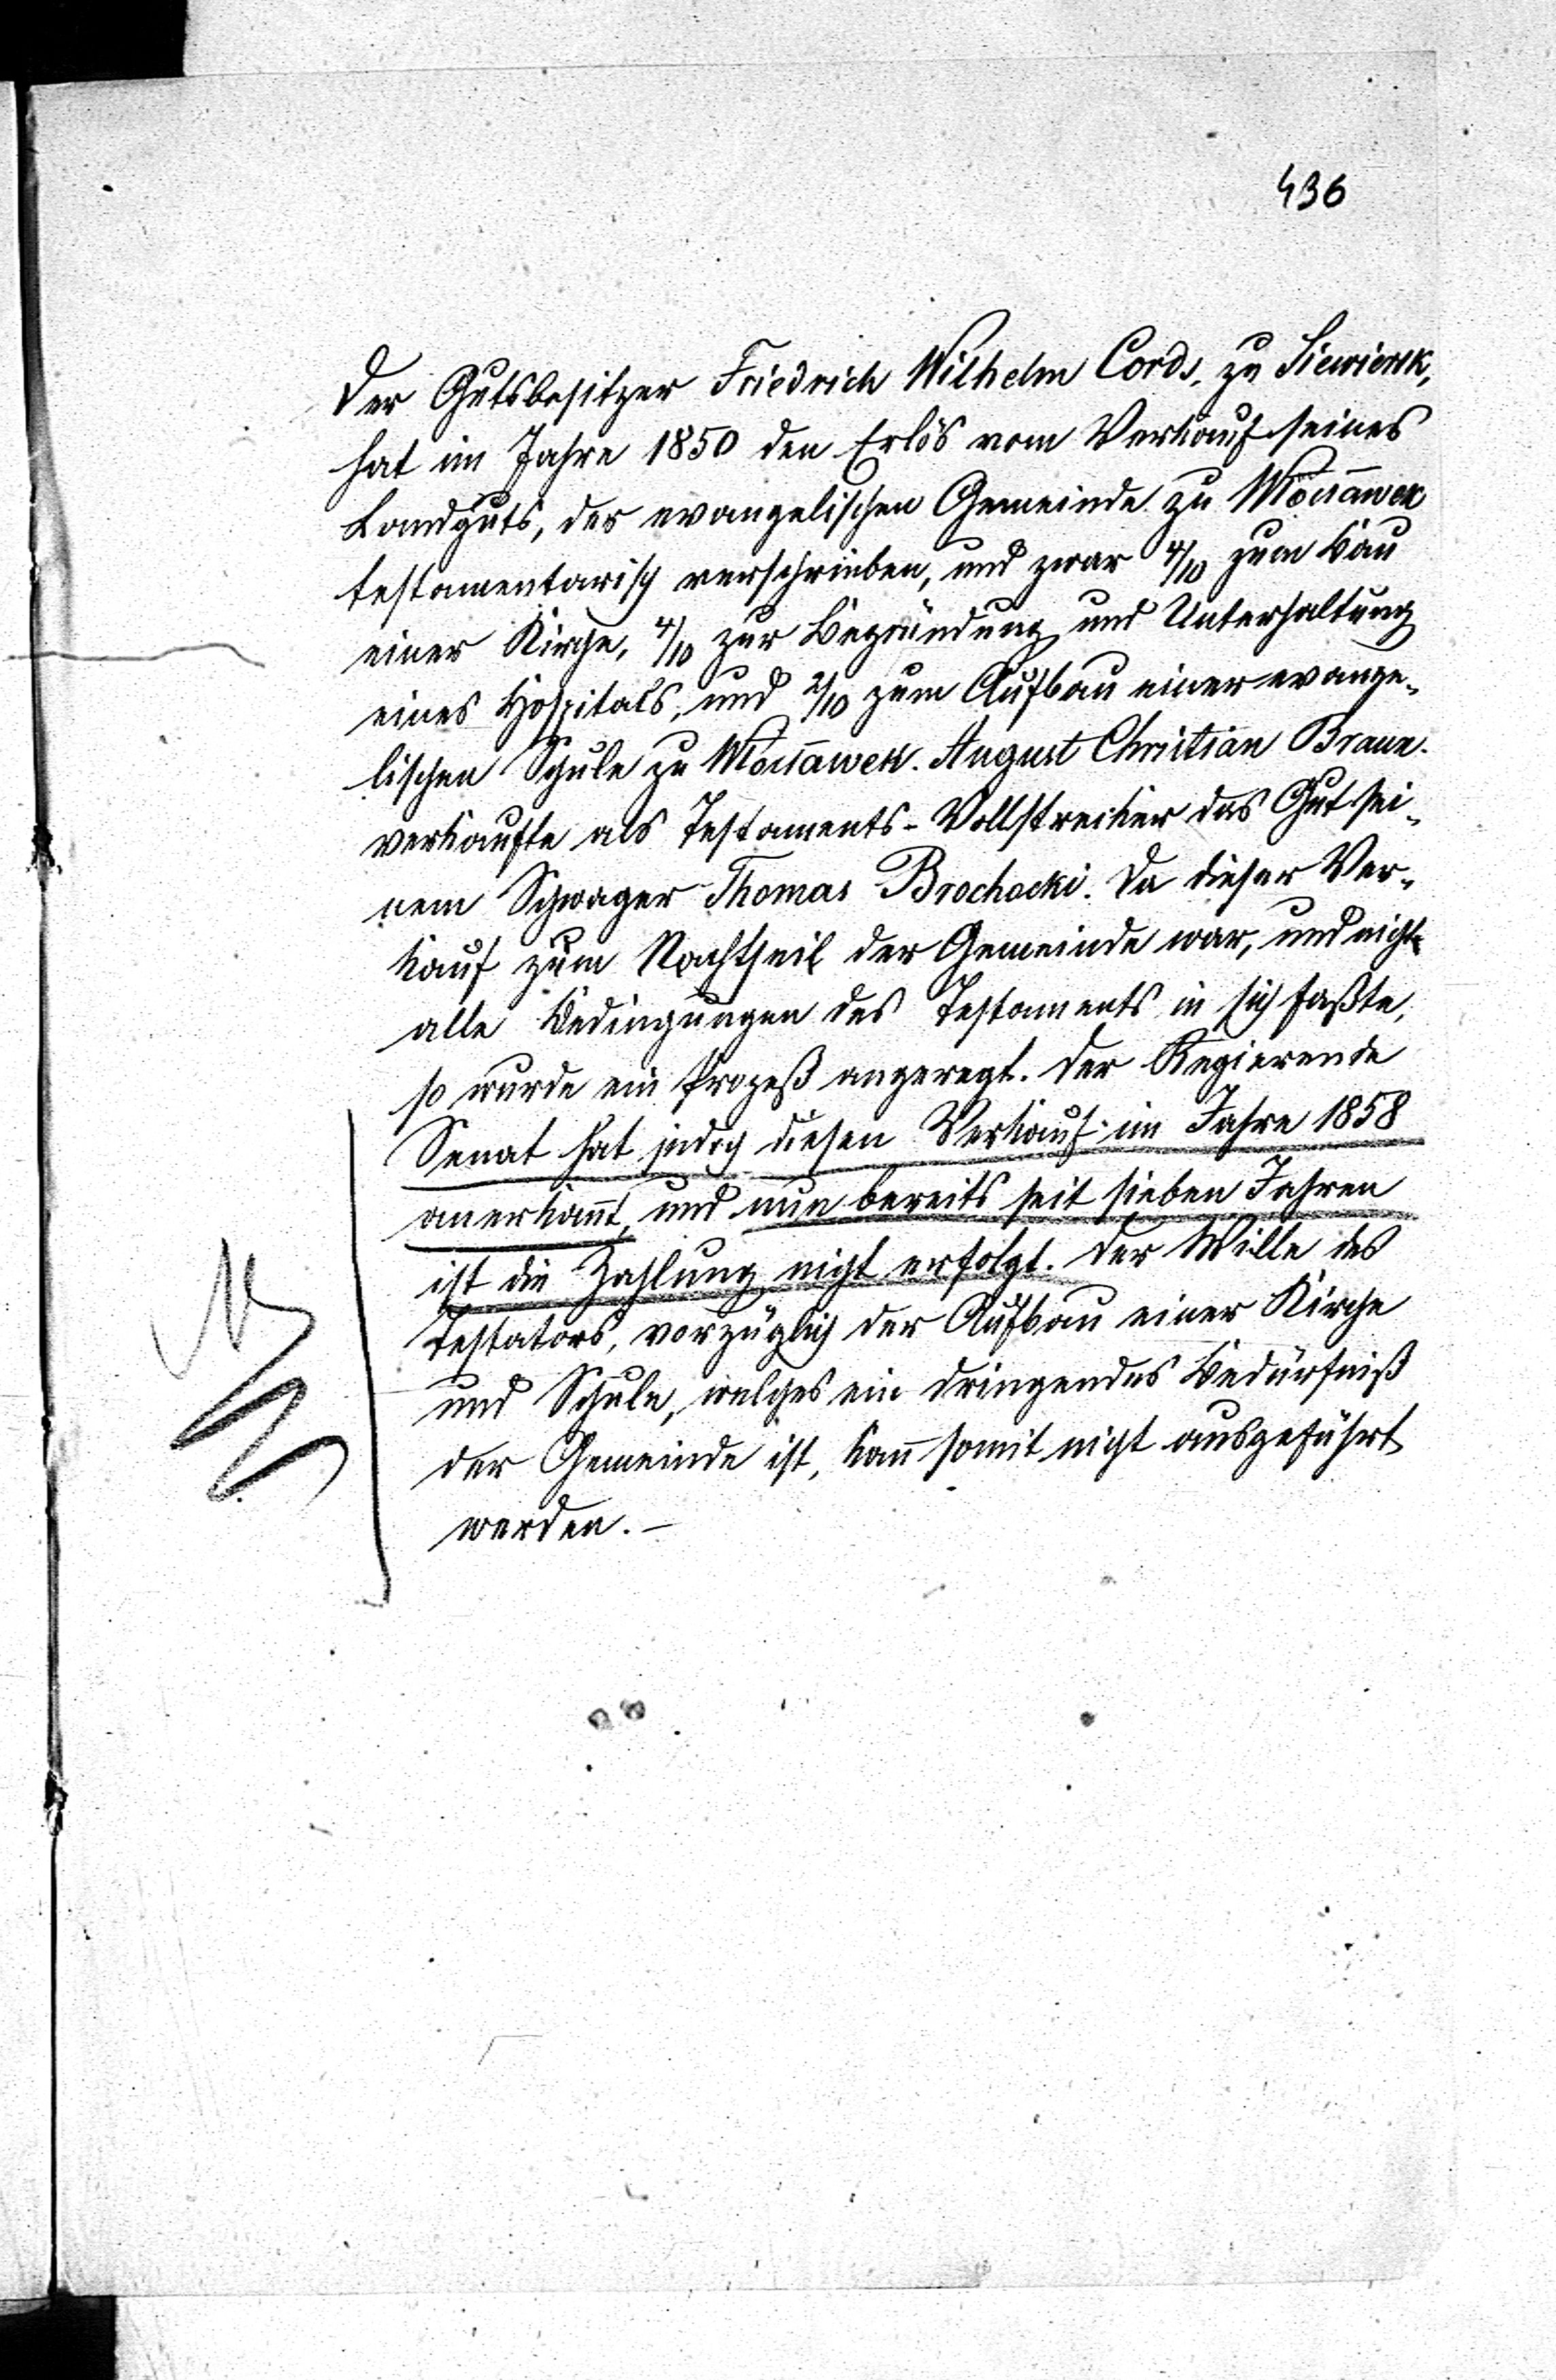 436
Der Gutsbesitzer Friedrich Wilhelm Cords, zu Siewiersk,
hat im Jahre 1850 den Erlös vom Verkauf seines
Landguts, der evangelischen Gemeinde zu Włocławek
testamentarisch verschrieben, und zwar 4/10 zum Bau
einer Kirche, 4/10 zur Begründung und Unterhaltung
eines Hospitals, und 2/10 zum Aufbau einer evange-
lischen Schule zu Włocławek. August Christian Braun
verkaufte als Testaments-Vollstrecker das Gut sei-
nem Schwager Thomas Brochocki. Da dieser Ver-
kauf zum Nachtheil der Gemeinde war, und nicht
alle Bedingungen des Testaments in sich faßte,
so wurde ein Prozeß angeregt. Der Regierende
Senat hat jedoch diesen Verkauf im Jahre 1858
anerkannt, und nun bereits seit sieben Jahren
ist die Zahlung nicht erfolgt. Der Wille des
Testators, vorzüglich der Aufbau einer Kirche
und Schule, welches ein dringendes Bedürfniß
der Gemeinde ist, kann somit nicht ausgeführt
werden.-